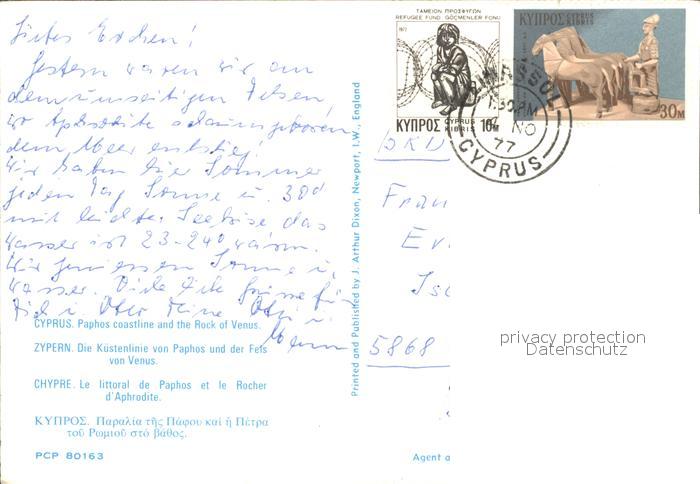 Liebes Evchen!
Gestern waren wir am
demumseitigen Felsen,
wo Aphrodite schaumgeboren
dem Meer entstieg!
Wir haben hier Sommer
jeden Tag Sonne u. 30°
mit leichter Seebrise das
Wasser ist 23-24° warm.
Wir geniessen Sonne u.
Wasser. Viele liebe Grüsse für
Dich u. Deine
CYPRUS. Paphos coastline and the Rock of Venus.
ZYPERN. Die Küstenlinie von Paphos und der Fels
von Venus.
CHYPRE. Le littoral de Paphos et le Rocher
d'Aphrodite.
ΚΥΠΡΟΣ. Παραλία τῆς Πάφου καί ἡ Πέτρα
τοῦ Ρωμιοῦ στό βάθος.
PCP 80163
Printed and Published by J. Arthur Dixon, Newport, I.W., England
ΤΑΜΕΙΟΝ ΠΡΟΣΦΥΓΩΝ
REFUGEE FUND GÖÇMENLER FONU
1977
ΚΥΠΡΟΣ CYPRUS KIBRIS 10M
ΚΥΠΡΟΣ CYPRUS KIBRIS
30M
LIMASSOL
1.30 PM
NO
77
CYPRUS
BRD
Frau
Ev
Ise
5868
Agent a
privacy protection
Datenschutz